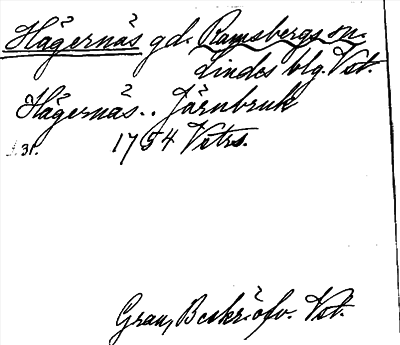 Hägernäs gd. Ramsbergs sn.
Lindes blg. Vst.
Hägernäs.. Järnbruk
1754 Vstrs.
31.
Grau, Beskr. öfv. Vst.